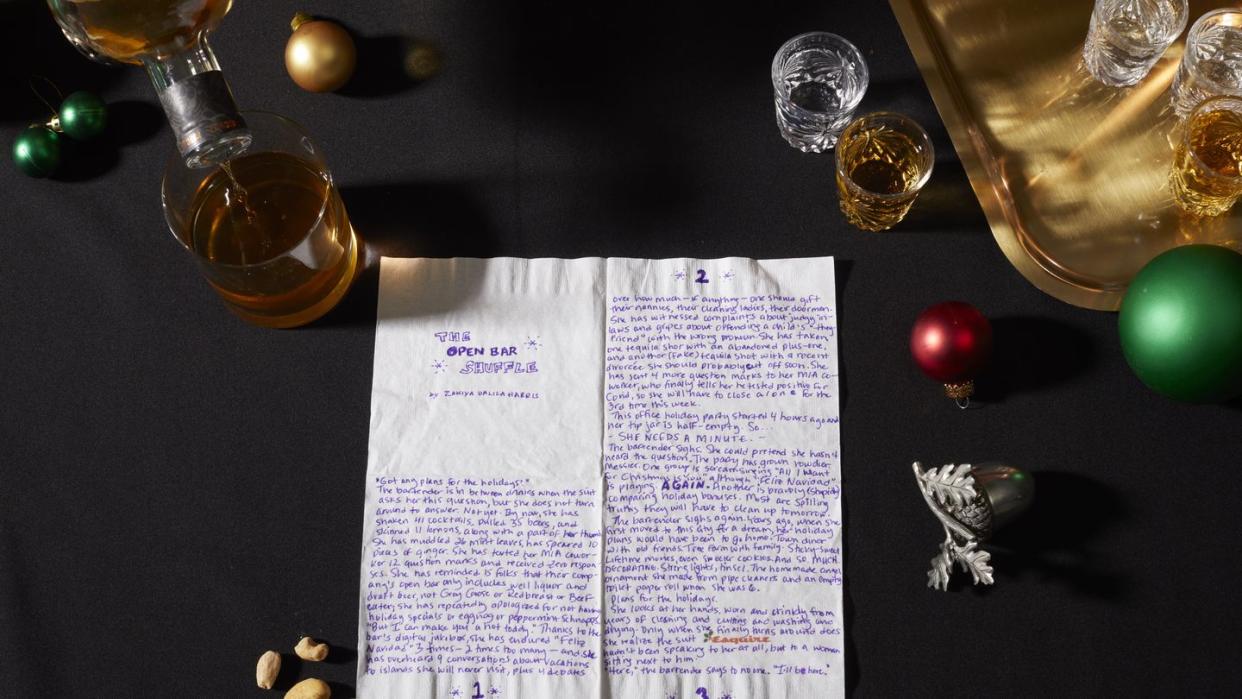 THE
OPEN BAR
SHUFFLE
by ZAKIYA DALILA HARRIS
"Got any plans for the holidays?"
The bartender is in between drinks when the suit
asks her this question, but she does not turn
around to answer. Not yet. By now, she has
shaken 41 cocktails, pulled 35 beers, and
skinned 11 lemons, along with a part of her thumb.
She has muddled 26 mint leaves, has speared 10
pieces of ginger. She has texted her MIA cowor-
ker 12 question marks and received zero respon-
ses. She has reminded 15 folks that their comp-
any's open bar only includes well liquor and
draft beer, not Grey Goose or Redbreast or Beef-
eater; she has repeatedly apologized for not having
holiday specials or eggnog or peppermint schnapps.
"But I can make you a hot toddy." Thanks to the
bar's digital jukebox, she has endured "Feliz
Navidad" 3 times—2 times too many—and she
has overheard 9 conversations about vacations
to islands she will never visit, plus 4 debates
1
2
over how much—if anything—one should gift
their nannies, their cleaning ladies, their doormen.
She has witnessed complaints about judgy in-
laws and gripes about offending a child's "they-
friend" with the wrong pronoun. She has taken
one tequila shot with an abandoned plus-one,
and another (fake) tequila shot with a recent
divorcée she should probably cut off soon. She
has sent 4 more question marks to her MIA co-
worker, who finally tells her he tested positive for
Covid, so she will have to close alone for the
3rd time this week.
This office holiday party started 4 hours ago and
her tip jar is half-empty. So...
- SHE NEEDS A MINUTE. -
The bartender sighs. She could pretend she hasn't
heard the question. The party has grown rowdier.
Messier. One group is scream-singing "All I Want
for Christmas is You" although "Feliz Navidad"
is playing. AGAIN. Another is bravely (stupidly)
comparing holiday bonuses. Most are spilling
truths they will have to clean up tomorrow.
The bartender sighs again. Years ago, when she
first moved to this city for a dream, her holiday
plans would have been to go home. Town diner
with old friends. Tree farm with family. Sticky-sweet
Lifetime movies, even sweeter cookies. And SO. MUCH.
DECORATING. String lights, tinsel. The homemade angel
ornament she made from pipe cleaners and an empty
toilet paper roll when she was 6.
Plans for the holidays.
She looks at her hands, worn and crinkly from
years of cleaning and cutting and washing and
drying. Only when she finally turns around does
she realize the suit
hadn't been speaking to her at all, but to a woman
sitting next to him.
"Here," the bartender says to no one. "I'll be here."
Esquire
3